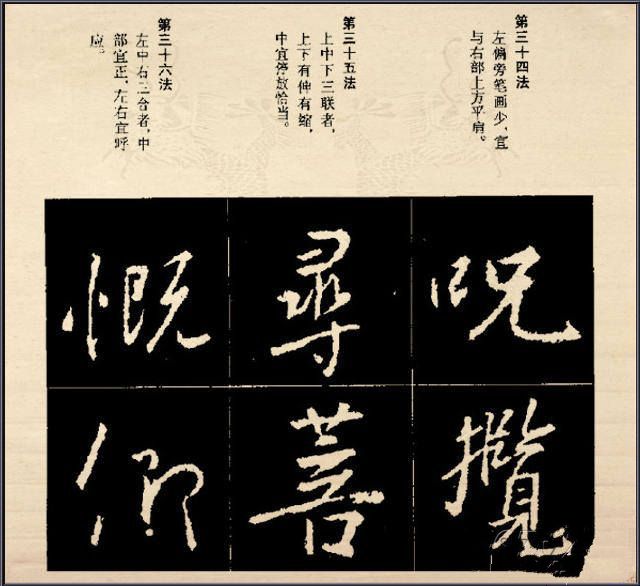 第三十四法
左偏旁笔画少，宜
与右部上方平肩。
第三十五法
上中下三联者，
上下有伸有缩，
中宜停放恰当。
第三十六法
左中右三合者，中
部宜正，左右宜呼
应。
呪
尋
慨
攬
善
仰